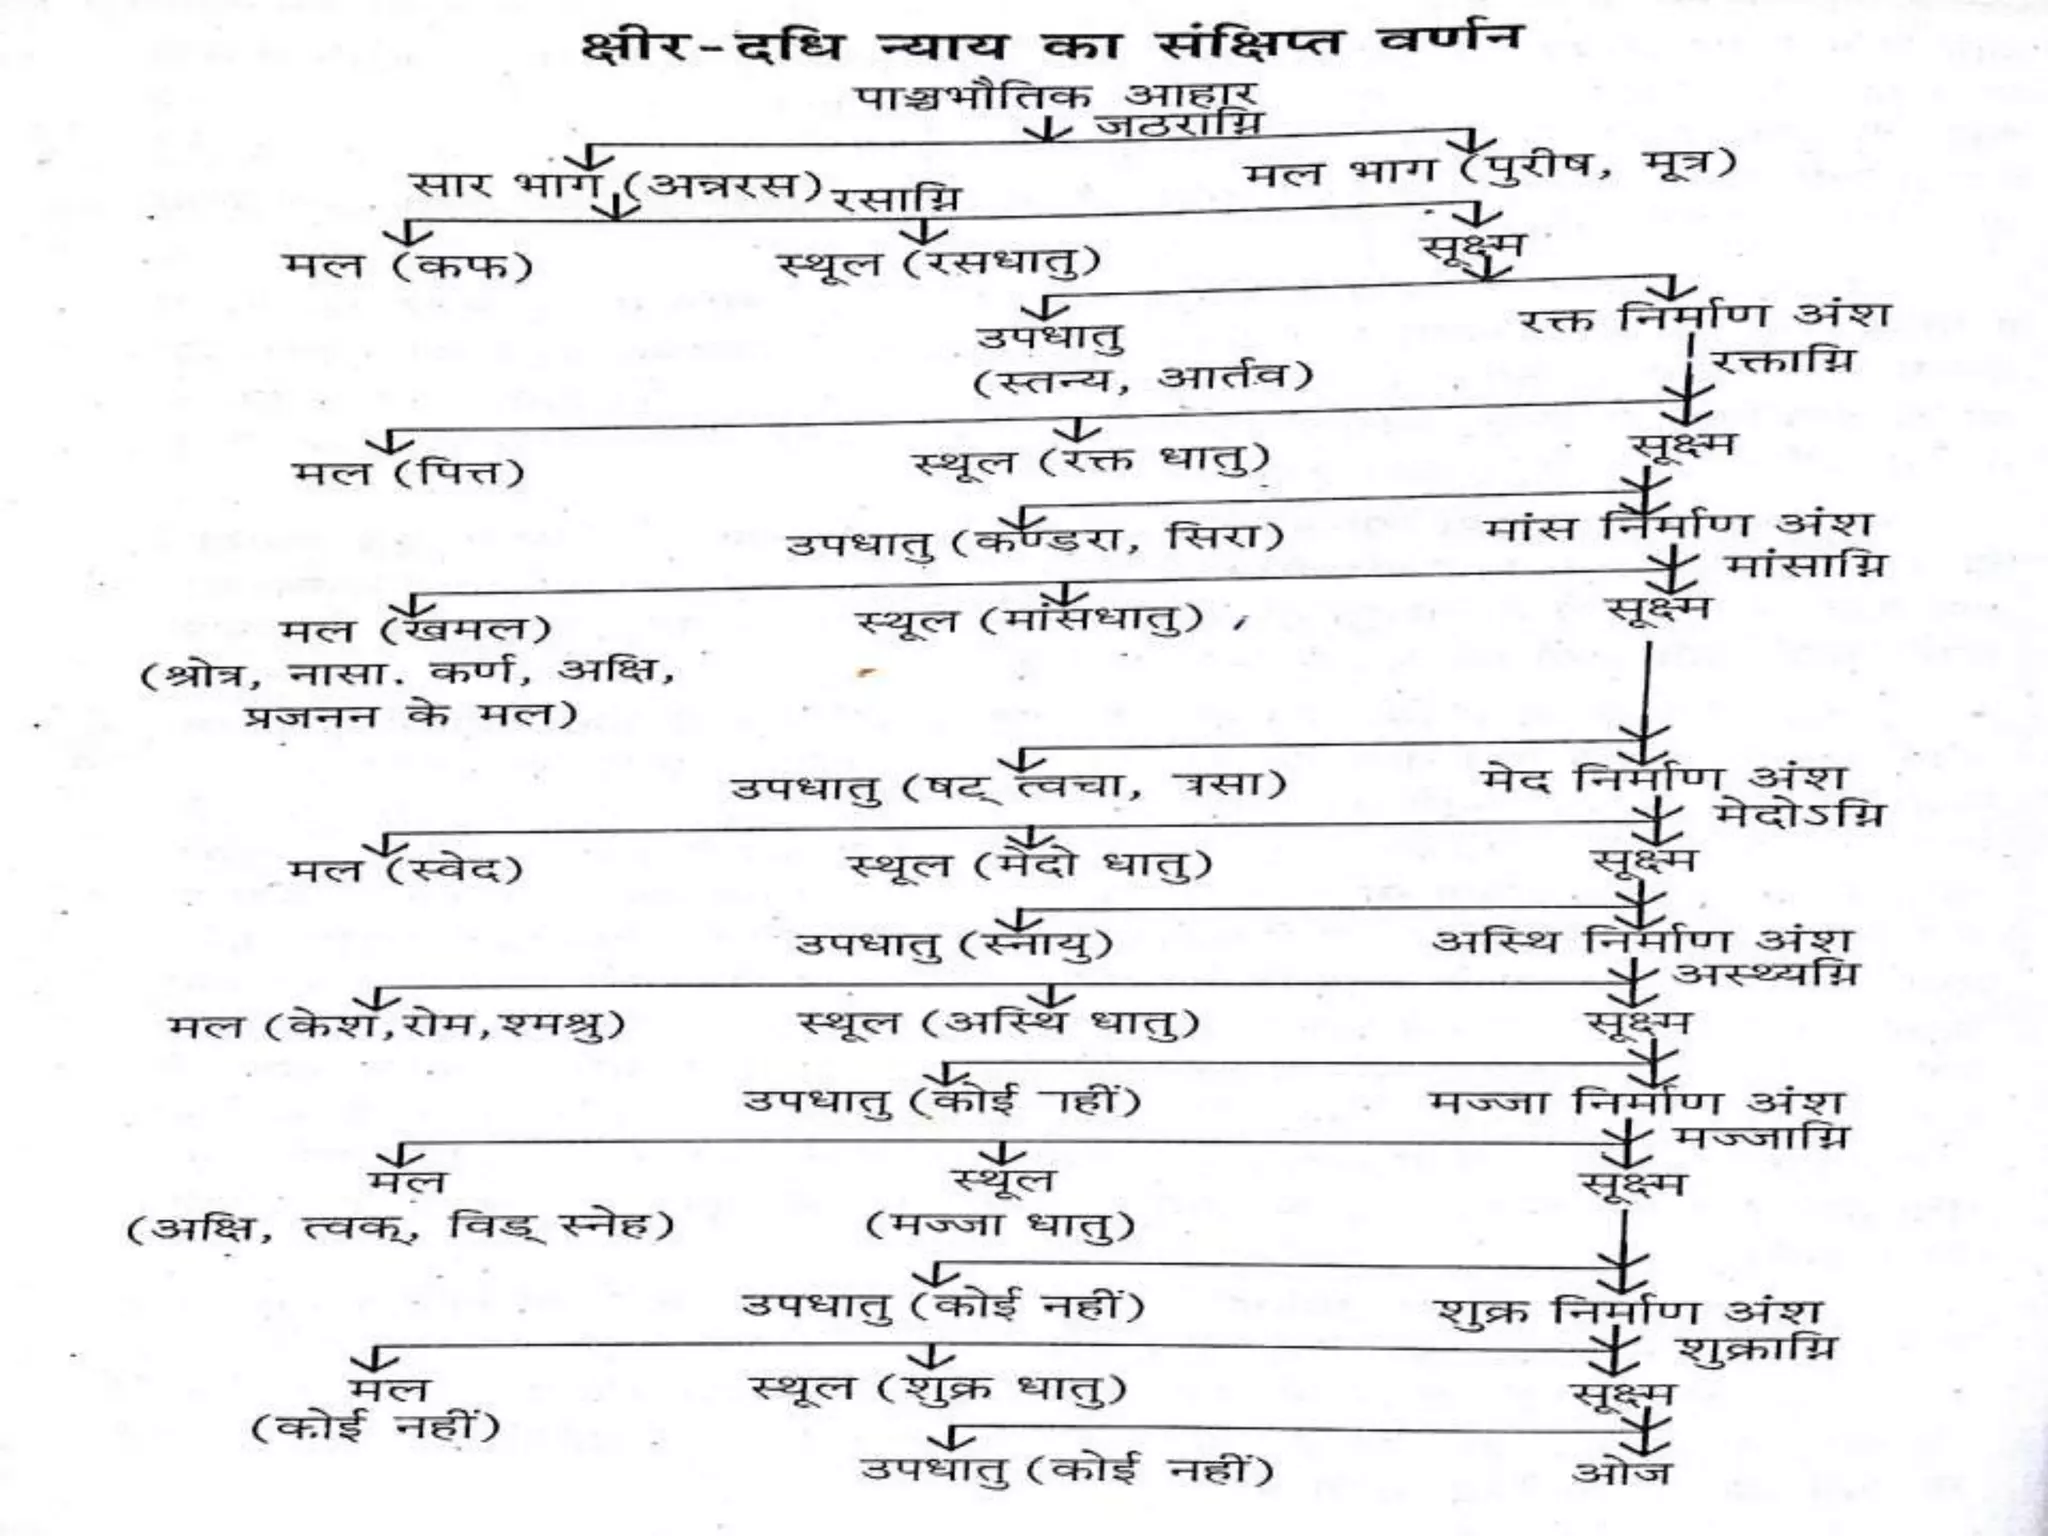 क्षीर-दधि न्याय का संक्षिप्त वर्णन
पाञ्चभौतिक आहार
जठराग्नि
सार भाग (अन्नरस) रसाग्नि
मल भाग (पुरीष, मूत्र)
मल (कफ)
स्थूल (रसधातु)
सूक्ष्म
उपधातु
(स्तन्य, आर्तव)
रक्त निर्माण अंश
रक्ताग्नि
मल (पित्त)
स्थूल (रक्त धातु)
सूक्ष्म
उपधातु (कण्डरा, सिरा)
मांस निर्माण अंश
मांसाग्नि
मल (खमल)
(श्रोत्र, नासा. कर्ण, अक्षि,
प्रजनन के मल)
स्थूल (मांसधातु)
सूक्ष्म
उपधातु (षट् त्वचा, त्रसा)
मेद निर्माण अंश
मेदोऽग्नि
मल (स्वेद)
स्थूल (मेदो धातु)
सूक्ष्म
उपधातु (स्नायु)
अस्थि निर्माण अंश
अस्थ्यग्नि
मल (केश,रोम,श्मश्रु)
स्थूल (अस्थि धातु)
सूक्ष्म
उपधातु (कोई नहीं)
मज्जा निर्माण अंश
मज्जाग्नि
मल
(अक्षि, त्वक्, विड् स्नेह)
स्थूल
(मज्जा धातु)
सूक्ष्म
उपधातु (कोई नहीं)
शुक्र निर्माण अंश
शुक्राग्नि
मल
(कोई नहीं)
स्थूल (शुक्र धातु)
सूक्ष्म
उपधातु (कोई नहीं)
ओज